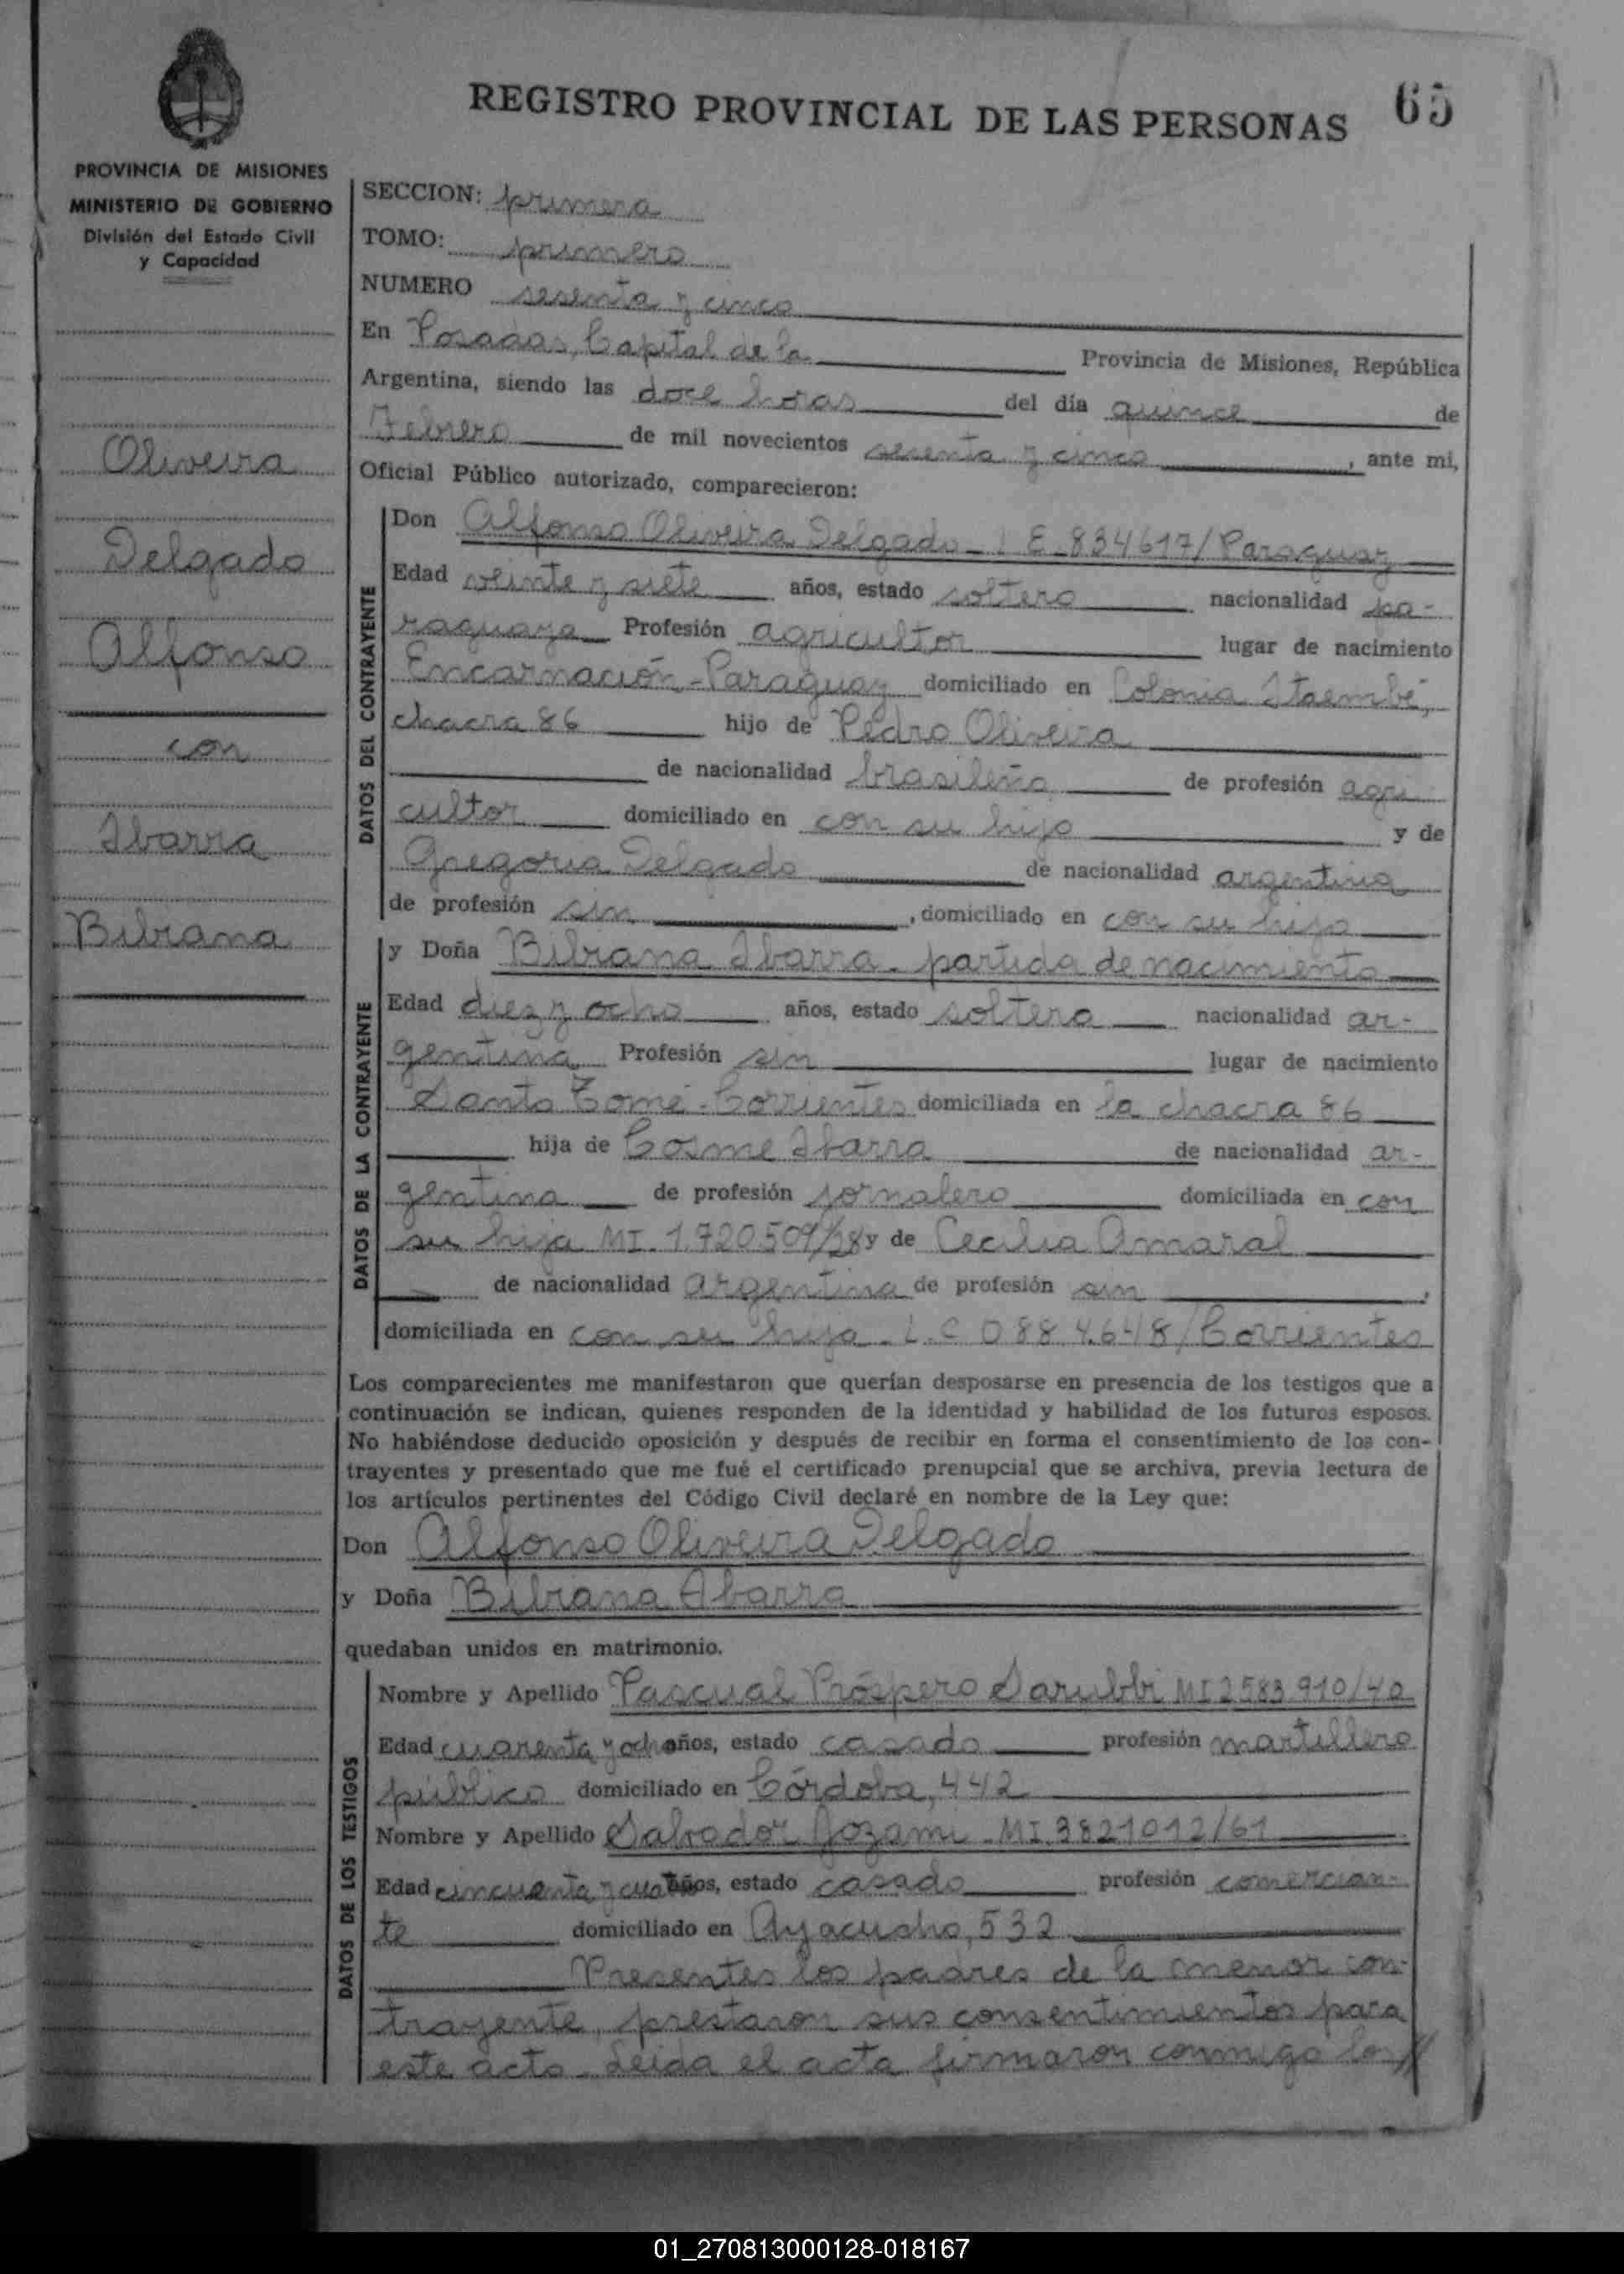 REGISTRO PROVINCIAL DE LAS PERSONAS 65
PROVINCIA DE MISIONES
MINISTERIO DE GOBIERNO
División del Estado Civil
y Capacidad
Oliveira
Delgado
Alfonso
con
Ibarra
Bibiana
SECCION: primera
TOMO: primero
NUMERO sesenta y cinco
En Posadas, Capital de la Provincia de Misiones, República
Argentina, siendo las doce horas del día quince de
Febrero de mil novecientos sesenta y cinco, ante mi,
Oficial Público autorizado, comparecieron:
DATOS DEL CONTRAYENTE
Don Alfonso Oliveira Delgado - I E 834617/Paraguay
Edad veinte y siete años, estado soltero nacionalidad pa-
raguaya Profesión agricultor lugar de nacimiento
Encarnación - Paraguay domiciliado en Colonia Itaembé,
chacra 86 hijo de Pedro Oliveira
de nacionalidad brasileña de profesión agri
cultor domiciliado en con su hijo y de
Gregoria Delgado de nacionalidad argentina
de profesión sin, domiciliado en con su hijo
DATOS DE LA CONTRAYENTE
y Doña Bibiana Ibarra - partida de nacimiento
Edad diez y ocho años, estado soltera nacionalidad ar-
gentina Profesión sin lugar de nacimiento
Santo Tomé - Corrientes domiciliada en la chacra 86
hija de Cosme Ibarra de nacionalidad ar-
gentina de profesión jornalero domiciliada en con
su hija MI. 1.720509/28 y de Cecilia Amaral
de nacionalidad argentina de profesión sin,
domiciliada en con su hija - L.C 0884.648/Corrientes
Los comparecientes me manifestaron que querían desposarse en presencia de los testigos que a
continuación se indican, quienes responden de la identidad y habilidad de los futuros esposos.
No habiéndose deducido oposición y después de recibir en forma el consentimiento de los con-
trayentes y presentado que me fué el certificado prenupcial que se archiva, previa lectura de
los artículos pertinentes del Código Civil declaré en nombre de la Ley que:
Don Alfonso Oliveira Delgado
y Doña Bibiana Ibarra
quedaban unidos en matrimonio.
DATOS DE LOS TESTIGOS
Nombre y Apellido Pascual Próspero Sarubbi MI 2583 910/40
Edad cuarenta y ocho años, estado casado profesión martillero
público domiciliado en Córdoba, 442
Nombre y Apellido Salvador Jozami - MI. 3821012/61
Edad cincuenta y cuatro años, estado casado profesión comercian-
te domiciliado en Ayacucho, 532
Presentes los padres de la menor con-
trayente, prestaron sus consentimientos para
este acto. Leida el acta firmaron conmigo los//
01_270813000128-018167